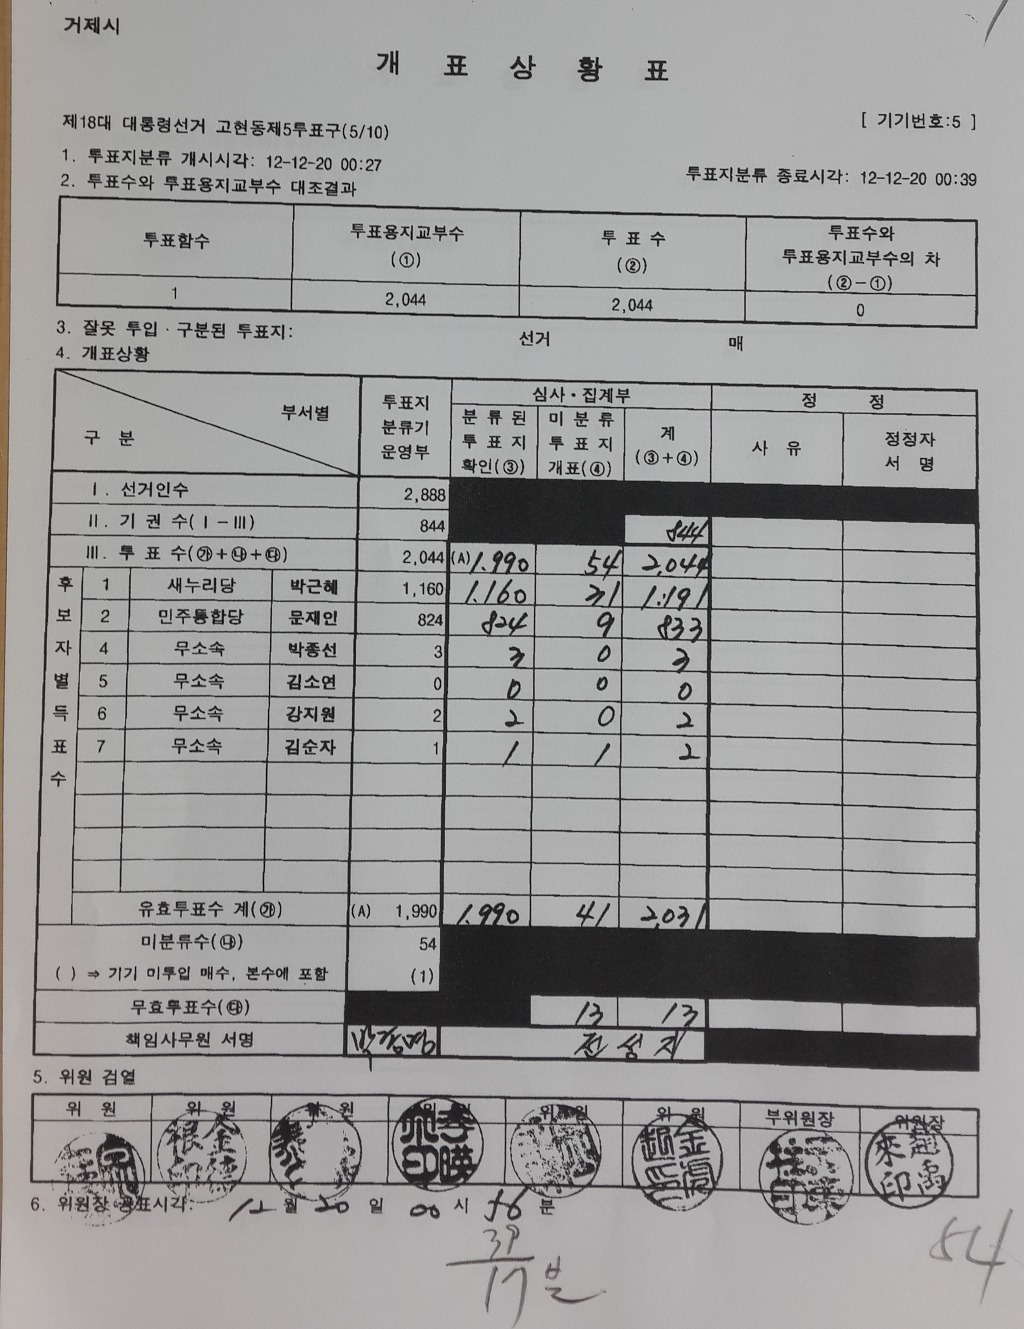 거제시
개 표 상 황 표
제18대 대통령선거 고현동제5투표구(5/10)
[ 기기번호:5 ]
1. 투표지분류 개시시각: 12-12-20 00:27
투표지분류 종료시각: 12-12-20 00:39
2. 투표수와 투표용지교부수 대조결과
투표함수 투표용지교부수 (①) 투 표 수 (②) 투표수와 투표용지교부수의 차 (②-①)
1 2,044 2,044 0
3. 잘못 투입·구분된 투표지: 선거 매
4. 개표상황
부서별 구 분 투표지 분류기 운영부 심사·집계부 정 정
분 류 된 투 표 지 확인(③) 미 분 류 투 표 지 개표(④) 계 (③+④) 사 유 정정자 서 명
Ⅰ. 선거인수 2,888
Ⅱ. 기 권 수(Ⅰ-Ⅲ) 844 844
Ⅲ. 투 표 수(㉮+㉯+㉰) 2,044 (A) 1.990 54 2,044
후보자별득표수
1 새누리당 박근혜 1,160 1.160 31 1.191
2 민주통합당 문재인 824 824 9 833
4 무소속 박종선 3 3 0 3
5 무소속 김소연 0 0 0 0
6 무소속 강지원 2 2 0 2
7 무소속 김순자 1 1 1 2
유효투표수 계(㉮) (A) 1,990 1.990 41 2,031
미분류수(㉯) 54
( ) ⇒ 기기 미투입 매수, 본수에 포함 (1)
무효투표수(㉰) 13 13
책임사무원 서명 전 성 지
5. 위원 검열
위 원 위 원 위 원 위 원 위 원 위 원 부위원장 위원장
6. 위원장 공표시각: 12 월 20 일 00 시 56 분
39
17 분
84